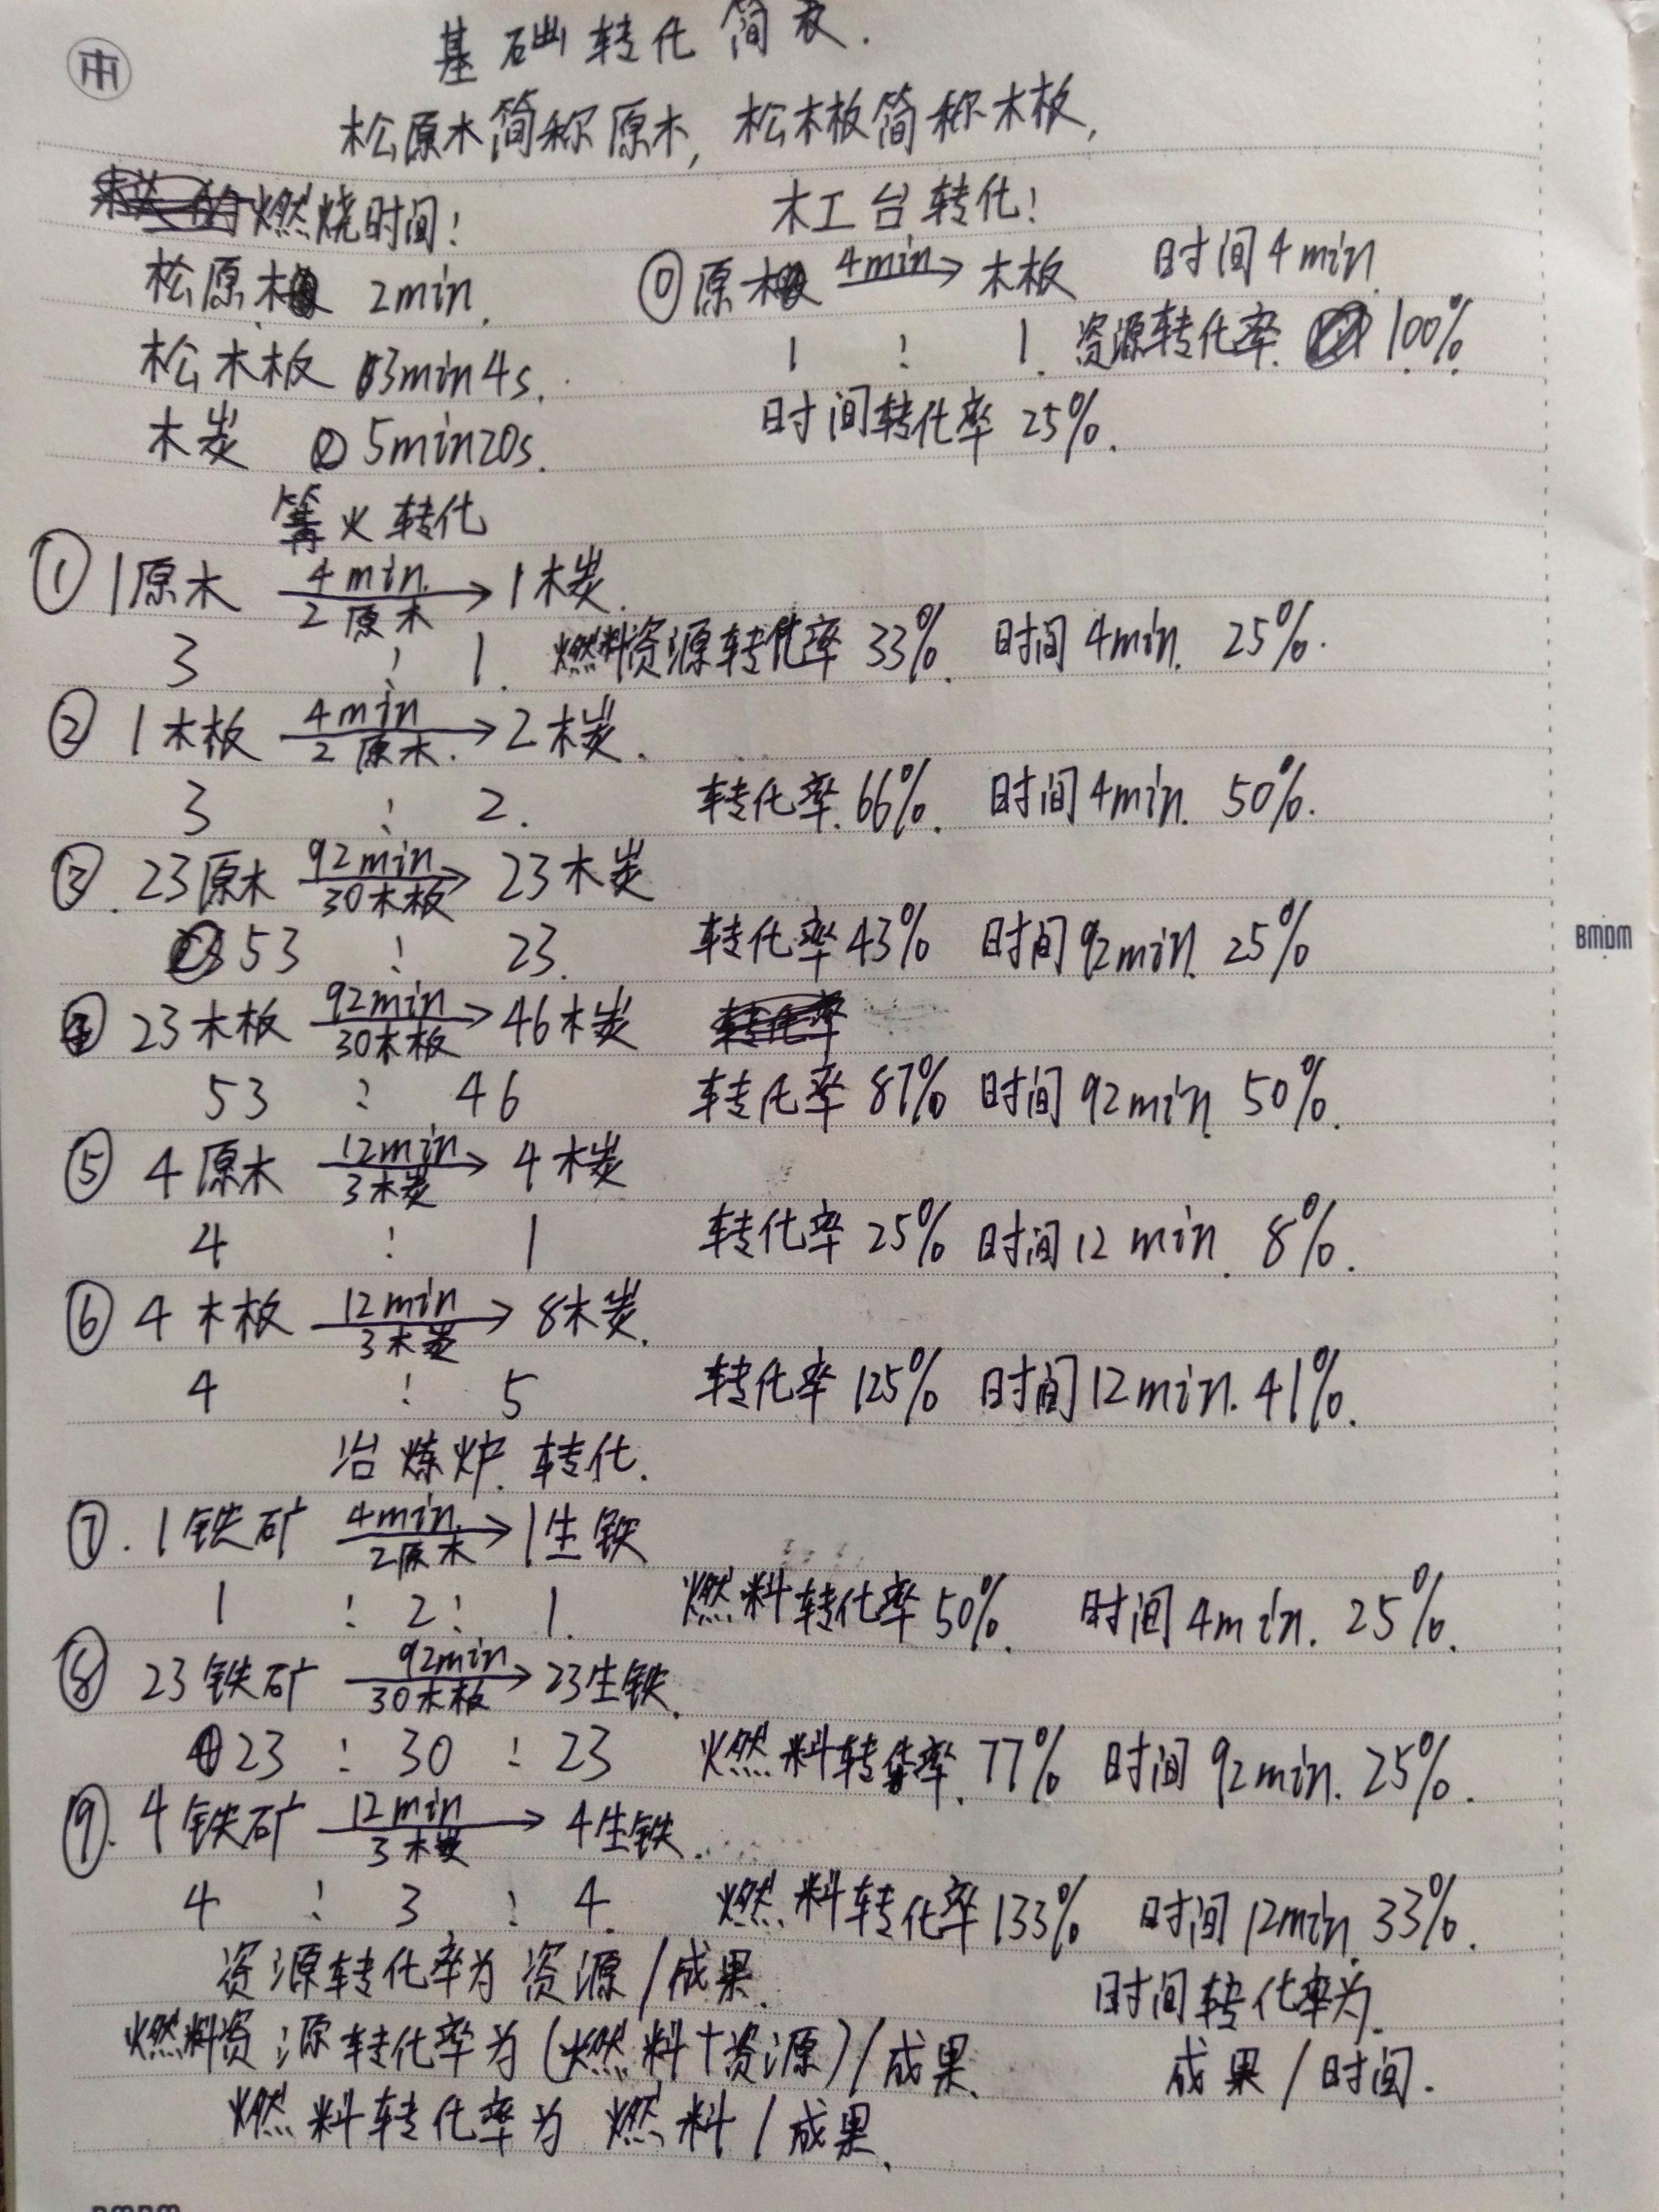 基础转化简表.
松原木简称原木, 松木板简称木板,
燃烧时间:
松原木 2min.
松木板 3min4s.
木炭 5min20s.
木工台转化:
⓪ 原木 4min→ 木板 时间4min
1 : 1. 资源转化率 100%.
时间转化率 25%.
篝火转化
① 1原木 4min. → 1木炭.
2原木
3 : 1. 燃料资源转化率 33%. 时间4min. 25%.
② 1木板 4min → 2木炭.
2原木.
3 : 2. 转化率.66%. 时间4min. 50%.
③. 23原木 92min → 23木炭
30木板
53 : 23. 转化率43% 时间92min. 25%
④ 23木板 92min → 46木炭
30木板
53 : 46 转化率87% 时间92min 50%.
⑤ 4原木 12min → 4木炭
3木炭
4 : 1 转化率25% 时间12min. 8%.
⑥ 4木板 12min → 8木炭.
3木炭
4 : 5 转化率125% 时间12min. 41%.
冶炼炉.转化.
⑦. 1铁矿 4min. → 1生铁
2原木
1 : 2 : 1. 燃料转化率50%. 时间4min. 25%.
⑧ 23铁矿 92min → 23生铁.
30木板
23 : 30 : 23 燃料转化率.77% 时间92min. 25%.
⑨. 4铁矿 12min → 4生铁.
3木炭
4 : 3 : 4. 燃料转化率133% 时间12min. 33%.
资源转化率为 资源/成果.
时间转化率为.
燃料资源转化率为(燃料+资源)/成果.
成果/时间.
燃料转化率为 燃料/成果.
BMDM